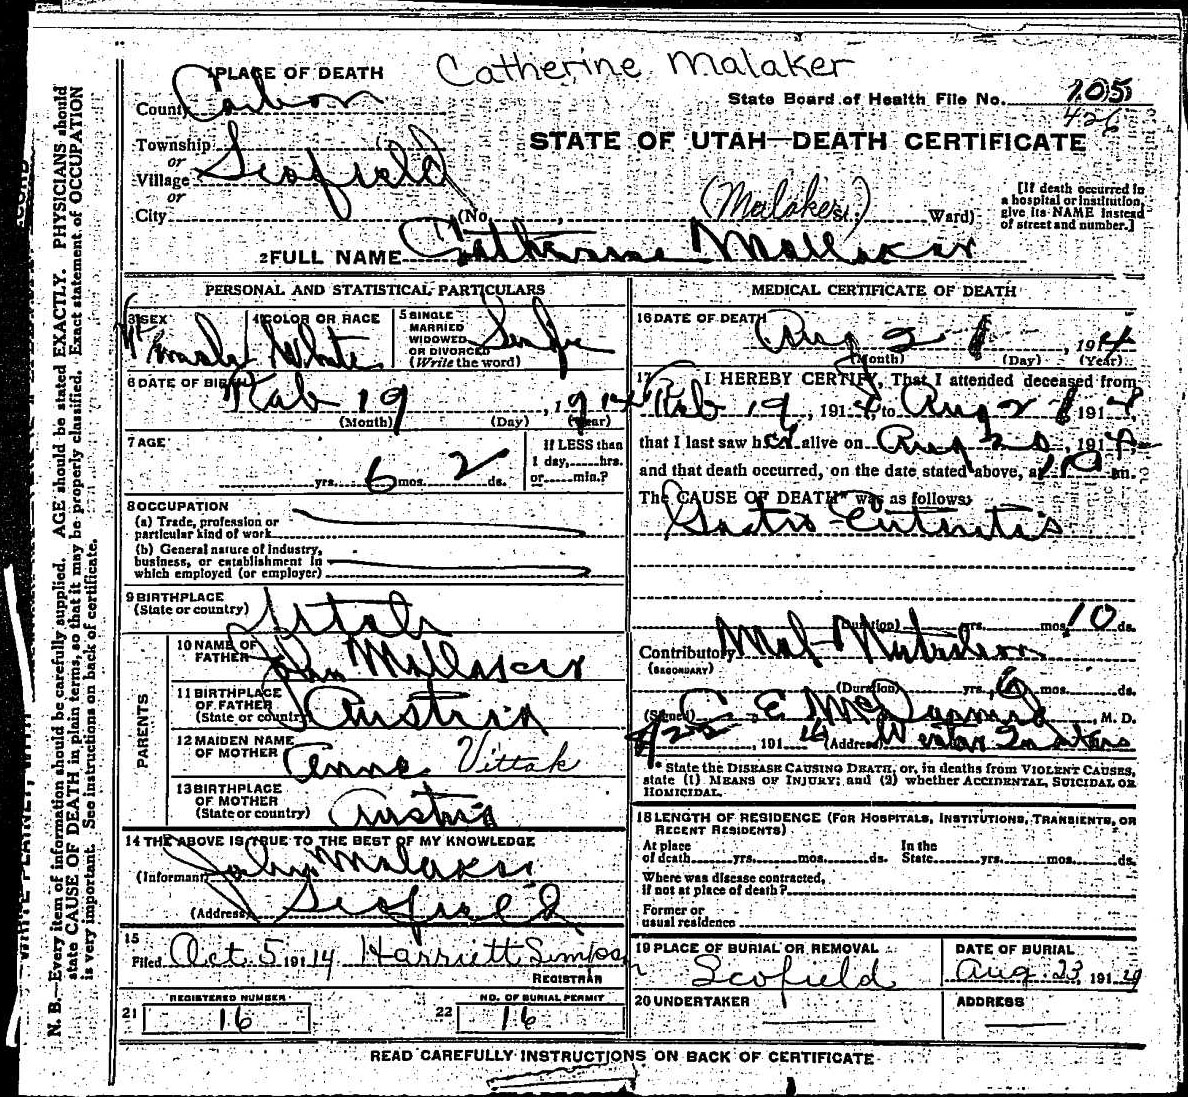 Catherine Malaker
1 PLACE OF DEATH
County Carbon
State Board of Health File No. 105
426
STATE OF UTAH—DEATH CERTIFICATE
Township
or
Village Scofield
or
City (No. , St., Ward)
(Malaker)
[If death occurred in a hospital or institution, give its NAME instead of street and number.]
2 FULL NAME Catherine Mallaker
PERSONAL AND STATISTICAL PARTICULARS
3 SEX Female
4 COLOR OR RACE White
5 SINGLE MARRIED WIDOWED OR DIVORCED (Write the word) Single
6 DATE OF BIRTH Feb 19, 1914
(Month) (Day) (Year)
7 AGE yrs. 6 mos. 2 ds.
If LESS than 1 day, hrs. or min.?
8 OCCUPATION
(a) Trade, profession or particular kind of work
(b) General nature of industry, business, or establishment in which employed (or employer)
9 BIRTHPLACE (State or country) Utah
PARENTS
10 NAME OF FATHER John Mallaker
11 BIRTHPLACE OF FATHER (State or country) Austria
12 MAIDEN NAME OF MOTHER Anna Vittak
13 BIRTHPLACE OF MOTHER (State or country) Austria
14 THE ABOVE IS TRUE TO THE BEST OF MY KNOWLEDGE
(Informant) John Malaker
(Address) Scofield
15
Filed Oct. 5 1914 Harriett Simpson
REGISTRAR
21 REGISTERED NUMBER 16
22 NO. OF BURIAL PERMIT 16
MEDICAL CERTIFICATE OF DEATH
16 DATE OF DEATH Aug 21, 1914
(Month) (Day) (Year)
17 I HEREBY CERTIFY, That I attended deceased from
Feb 19, 1914, to Aug 21 1914,
that I last saw her alive on Aug 20, 1914,
and that death occurred, on the date stated above, at m.
The CAUSE OF DEATH* was as follows:
Gastro-Enteritis
(Duration) yrs. mos. 10 ds.
Contributory Mal-Nutrition
(SECONDARY)
(Duration) yrs. 6 mos. ds.
(Signed) C. E. McDermid, M. D.
8/22, 1914 (Address) Winter Quarters
* State the DISEASE CAUSING DEATH, or, in deaths from VIOLENT CAUSES, state (1) MEANS OF INJURY; and (2) whether ACCIDENTAL, SUICIDAL OR HOMICIDAL.
18 LENGTH OF RESIDENCE (FOR HOSPITALS, INSTITUTIONS, TRANSIENTS, OR RECENT RESIDENTS)
At place of death yrs. mos. ds. In the State yrs. mos. ds.
Where was disease contracted, if not at place of death?
Former or usual residence
19 PLACE OF BURIAL OR REMOVAL Scofield
DATE OF BURIAL Aug. 23, 1914
20 UNDERTAKER
ADDRESS
READ CAREFULLY INSTRUCTIONS ON BACK OF CERTIFICATE
N. B.—Every item of information should be carefully supplied. AGE should be stated EXACTLY. PHYSICIANS should
state CAUSE OF DEATH in plain terms, so that it may be properly classified. Exact statement of OCCUPATION
is very important. See instructions on back of certificate.